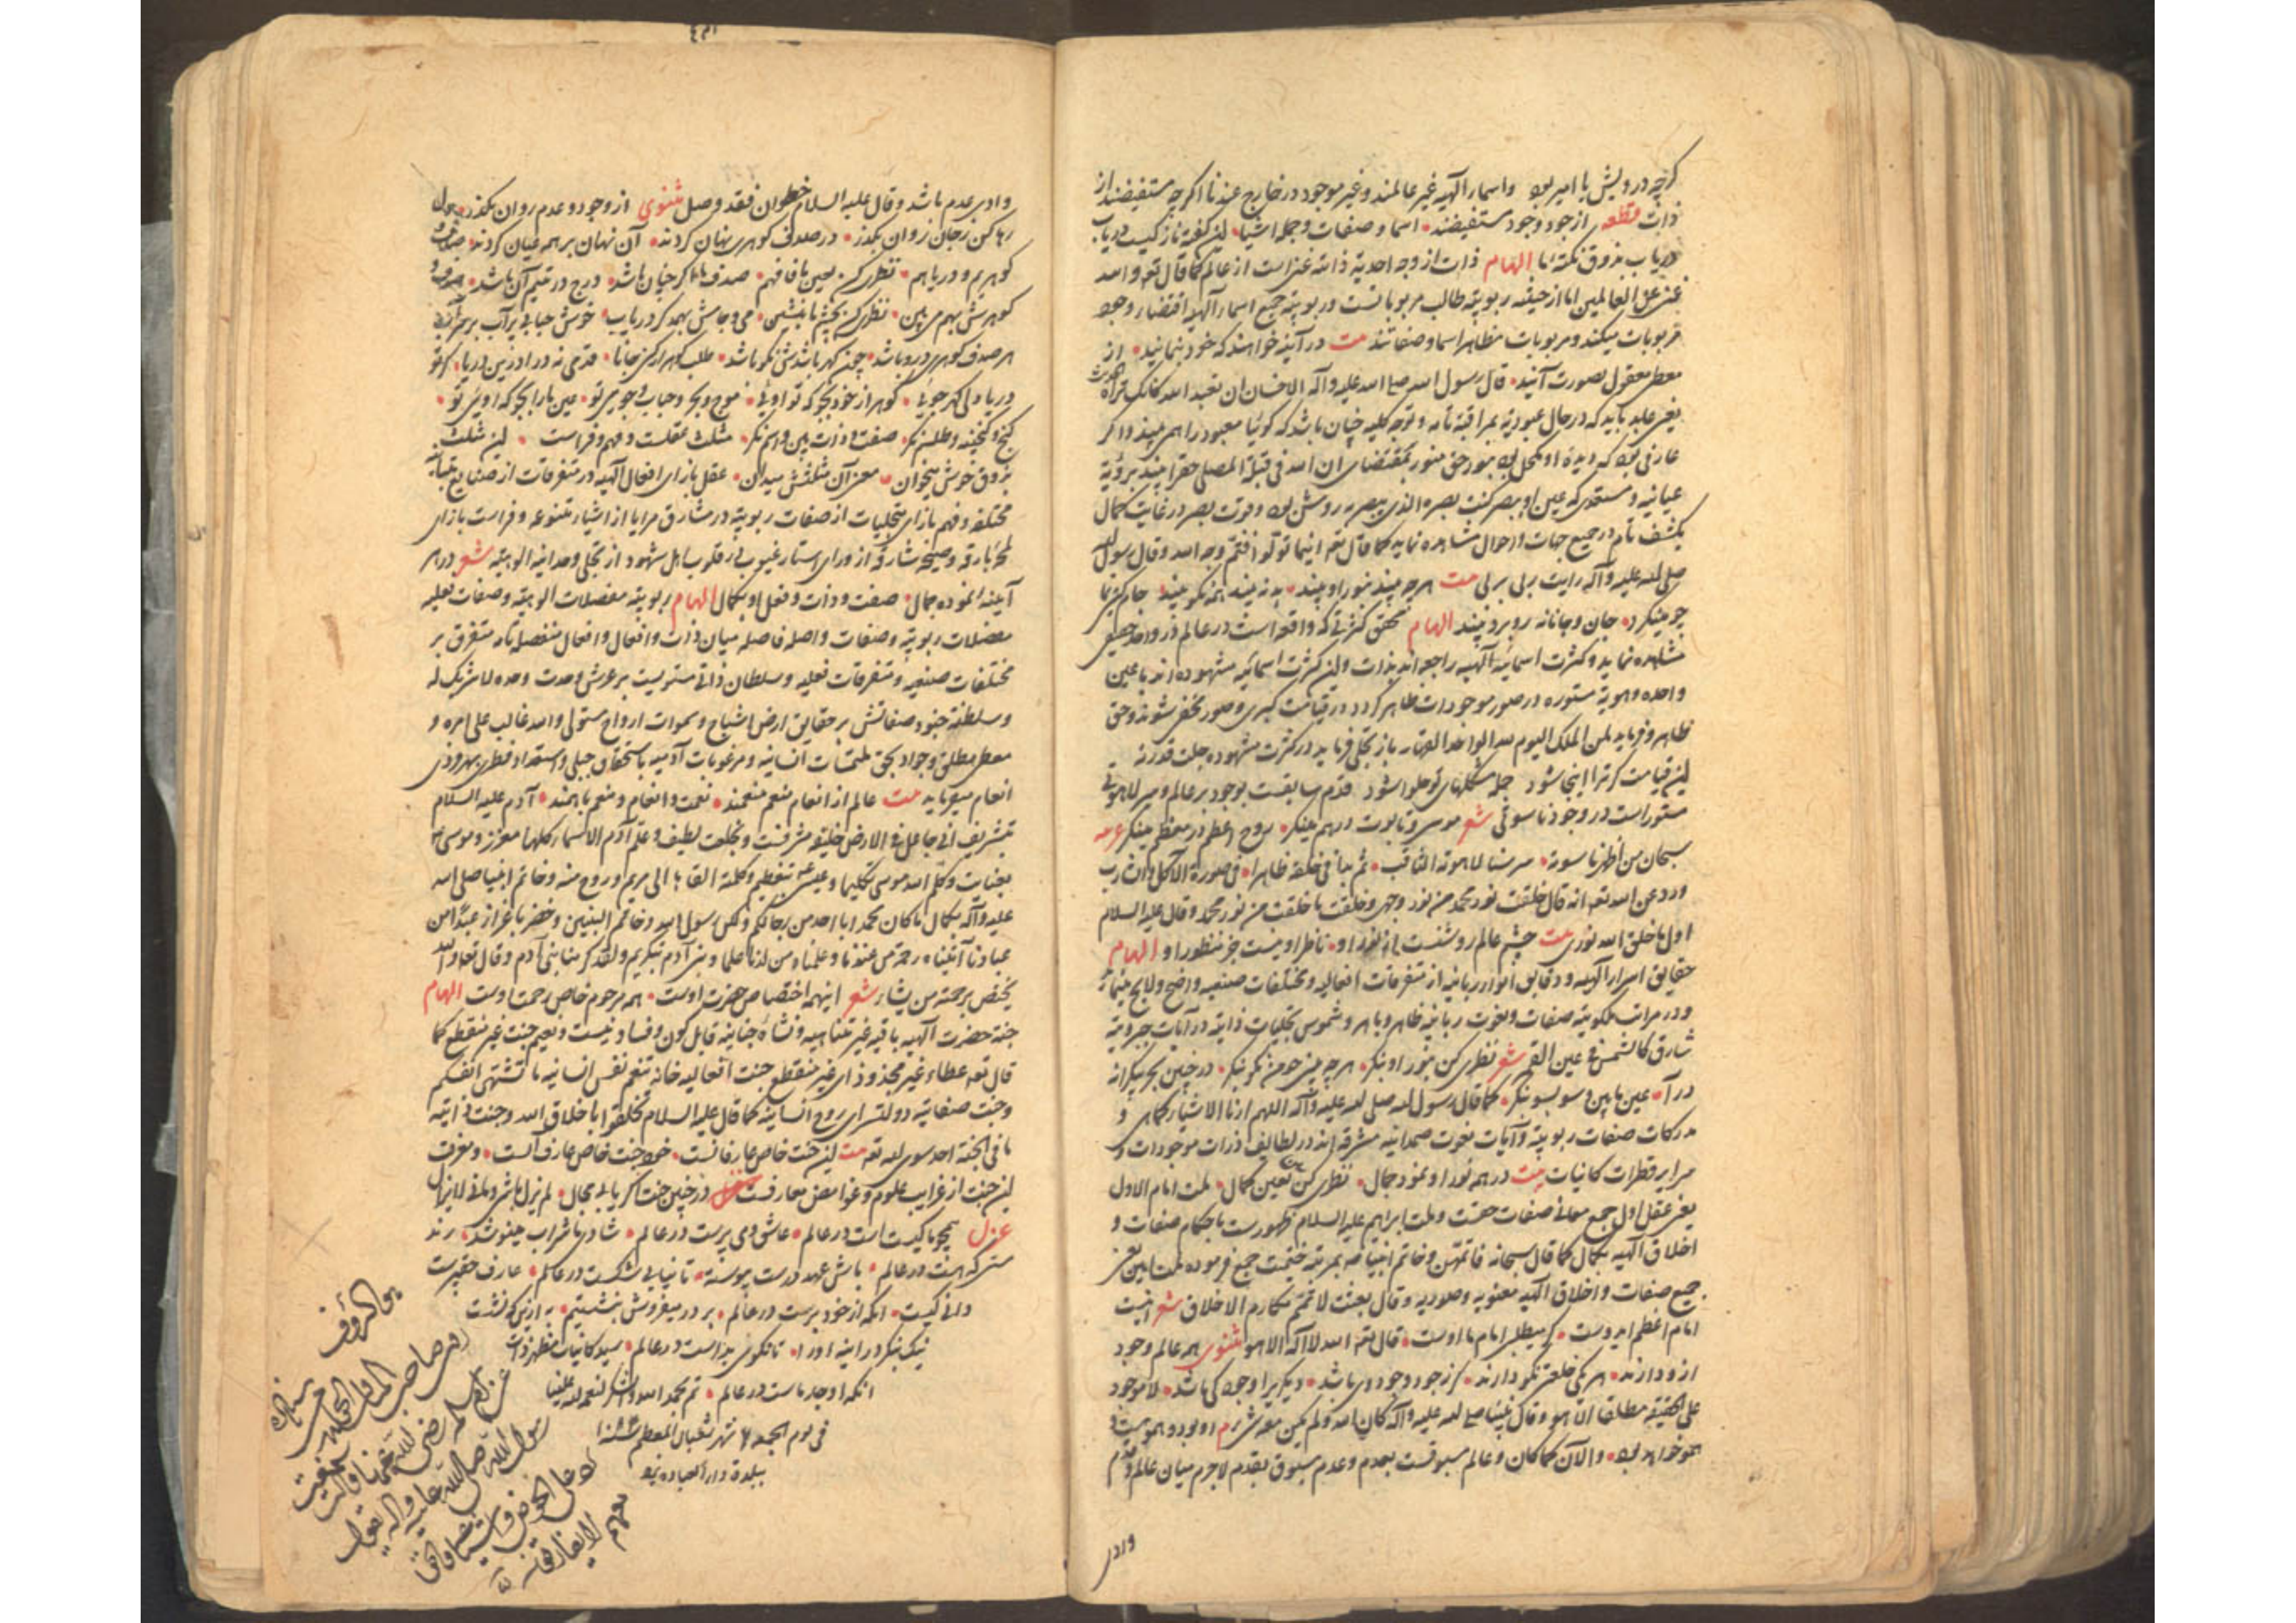 کرچه درویش یا امیر بود واسماء الهیه غیر عالمند وغیر موجود در خارج عندنا اکرچه مستفیضند از
ذات قطعه از جود وجود مستفیضند اسما و صفات وجمله اشیا این کفته
دریاب بذوق نکته ما الهام ذات از وجه احدیة ذاته غنی است از عالم کما قال تعو والله
غنی عن العالمین اما از حیثیه ربوبیته طالب مربوباتست وربوبیته جمیع اسماء الهیه اقتضاء وجود
مربوبات میکند ومربوبات مظاهر اسما وصفاتند بیت در آینه خواهند که خود بنمایند از
معطی معقول بصورت آیند قال رسول الله صلی الله علیه وآله الاحسان ان تعبد الله کانک تراه الحدیث
یعنی عابد باید که در حال عبودیة بمراقبة تامه وتوجه کلیه چنان باشد که کوئیا معبود را همی بیند واکر
عارفی بود که دیدهٔ او مکحل بود بنور حق منور بمقتضای ان الله فی قبلة المصلی حق را بیند برؤیة
عیانیه و مستعدی که عین او بصر کنت بصره الذی یبصر به روشن بود وقوت بصر در غایت کمال
بکشف تام در جمیع جهات واحوال مشاهده نماید کما قال تعو اینما تولوا فثم وجه الله وقال رسول الله
صلی الله علیه وآله رایت ربی بربی بیت هرچه بیند بنور او بیند بد نه بیند همه نکو بیند جام کیتی نما
چو مینکرد جان وجانانه روبرو بیند الهام محقق کثرتی که واقع است در عالم در واحد حقیقی
مشاهده نماید وکثرت اسمائیه الهیه راجعه اند بذات واین کثرت اسمائیه مشهوده اند با عین
واحده وهویة مستوره در صور موجودات ظاهر کردد در قیامت کبری وصور مخفی شوند وحق
ظاهر وفرماید لمن الملک الیوم لله الواحد القهار باز تجلی فرماید در کثرت مشهوده جلت قدرته
این قیامت کر ترا اینجا شود جمله مشکلهای تو حلوا شود قدم سابقست بوجود بر عالم وسر لاهوتی
مستور است در وجود ناسوتی شعر موسی وتابوت درهم مینکر روح اعظم در معظم مینکر عربیه
سبحان من اظهر ناسوته سر سنا لاهوته الثاقب ثم بدا فی خلقه ظاهرا فی صورة الآکل والشارب
ورد عن الله تعو انه قال خلقت نور محمد من نور وجهی وخلقت ما خلقت من نور محمد وقال علیه السلام
اول ما خلق الله نوری بیت چشم عالم روشنست از نور او ناظر او نیست جز منظور او الهام
حقایق اسرار الهیه ودقایق انوار ربانیه از متفرقات افعالیه ومختلفات صنعیه واضح ولایح مینماید
ودر مراتب ملکوتیه صفات ونعوت ربانیه ظاهر وباهر وشموس تجلیات ذاتیه در آیات جبروتیه
شارق کالشمس فی عین القمر شعر نظری کن بنور او بنکر هرچه بینی چو من نکو بنکر در چنین بحر بیکرانه
در آ عین ما بین وسوبسو بنکر کما قال رسول الله صلی الله علیه وآله اللهم ارنا الاشیاء کما هی و
مدرکات صفات ربوبیته وآیات نعوت صمدانیه مشرقه اند در لطایف ذرات موجودات و
سرایر قطرات کاینات بیت در همه نور او نمود جمال نظری کن بعین کمال ملت امام الاول
یعنی عقل اول جمیع معانی صفات حقست وملت ابراهیم علیه السلام ظهورست باحکام صفات و
اخلاق الهیه بکمال کما قال سبحانه فاتمهن وخاتم انبیا صه بمرتبه ختمیت جمیع فرموده ملت این یعنی
جمیع صفات واخلاق الهیه معنویه وصوریه وقال بعثت لاتمم مکارم الاخلاق شعر اینست
امام اعظم ای دوست کر میطلبی امام ما اوست قال تعو الله لا اله الا هو مثنوی همه عالم وجود
ازو دارند هر یکی خلعتی نکو دارند کر ز جود وجود وی باشد دیکریرا وجود کی باشد لا موجود
علی الحقیقة مطلقا الا هو وقال نبینا صلی الله علیه وآله کان الله ولم یکن معه شیء او بود وهمو هست و
همو خواهد بود والآن کما کان وعالم مسبوقست بعدم وعدم مسبوق بقدم لاجرم میان عالم وقدم
وادی
وادی عدم باشد وقال علیه السلام خطوتان فقد وصل مثنوی از وجود وعدم روان بکذر
رها کن ز جان روان بکذر در صدف کوهری نهان کردند آن نهان بر همه عیان کردند صدف
کوهریم ودریا هم نظری کن بعین ما فافهم صدف ما اکر چنان باشد درج در یتیم آن باشد
کوهرش بهم می بین نظری کن بچشم ما بنشین می وجامش بهمدکر دریاب خوش حبابی پر آب
هر صدف کوهری درو باشد چون کهر باشدش نکو باشد طلب کوهر ار کنی جانا قدمی نه درا درین دریا
دریا دلی کهر جوئی کوهر از خود بجو که تو اوئی موج وبحر وحباب وجو می تو عین ما را بجو که اوئی تو
کنج وکنجینه وطلسم نکر صفت وذات بین واسم نکر مثلث عقلست وفهم وفراست این مثلث
بذوق خوش میخوان معنی آن مثلثش میدان عقل بازای افعال الهیه در متفرقات از صنایع
مختلفه وفهم بازای تجلیات از صفات ربوبیته در مشارق مرایا از اشیاء متنوعه وفراست بازای
لمحهٔ بارقه وصیحهٔ شارقه از ورای استار غیوب بر قلوب اهل شهود از تجلی وحدانیه الوهیته شعر در هر
آینه نموده جمال صفت وذات وفعل او بکمال الهام ربوبیته مفصلات الوهیته وصفات فعلیه
مفصلات ربوبیته وصفات واصله فاصله میان ذات وافعال وافعال منفصله تامه متفرق بر
مختلفات صنعیه ومتفرقات فعلیه وسلطان ذاتی مستویست بر عرش وحدت وحده لا شریک له
وسلطنة جنود صفاتش بر حقایق ارض اشباح وسموات ارواح مستولی والله غالب علی امره و
معطی مطلق وجواد بحق ملتمسات انسانیه ومرغوبات آدمیه باستحقاق جبلی واستعداد فطری
انعام میفرماید بیت عالم از انعام منعم منعمند نعمت وانعام ومنعم باهمند آدم علیه السلام
بتشریف انی جاعل فی الارض خلیفة مشرفست وبخلعت لطیف وعلم آدم الاسماء کلها معزز وموسی
بعنایت وکلم الله موسی تکلیما وعیسی بتعظیم وکلمته القاها الی مریم وروح منه وخاتم انبیا صلی الله
علیه وآله بکمال ما کان محمد ابا احد من رجالکم ولکن رسول الله وخاتم النبیین وخضر باعزاز عبدا من
عبادنا آتیناه رحمة من عندنا وعلمناه من لدنا علما وبنی آدم بتکریم ولقد کرمنا بنی آدم وقال تعو والله
یختص برحمته من یشاء شعر اینهمه اختصاص حضرت اوست همه مرحوم خاص رحمت اوست الهام
جنة حضرت الهیه باقیه غیر متناهیه ونشأة جنانیه قابل کون وفساد نیست ونعیم جنت غیر منقطع کما
قال تعو عطاء غیر مجذوذ ای غیر منقطع جنت افعالیه خانهٔ تنعم نفس انسانیه ما تشتهی انفسکم
وجنت صفاتیه دولتسرای روح انسانیه کما قال علیه السلام تخلقوا باخلاق الله وجنت ذاتیه
ما فی الجنة احد سوی الله تعو بیت این جنت خاص عارفانست خود جنت خاص عارف آنست ومعرفت
این جنت از غرایب علوم وغوامض معارفست در چنین جنت اکر یابی مجال لم یزل باشی ومانی لایزال
غزل همچو ما کیست مست در عالم عاشق ومی پرست در عالم شادی ما شراب مینوشد رند
سرمست در عالم باش عهد درست پیوسته تا نیابی شکست در عالم عارف حقپرست
دانی کیست آنکه از خود برست در عالم بر در میفروش بنشستیم به ازین کو نشست
نیک بنکر در آینه او را تا نکوئی بد است در عالم سید کاینات مظهر ذات
آنکه او جد ماست در عالم تم بحمد الله والشکر لنعمه علینا
فی یوم الجمعه شهر شعبان المعظم
ببلدة دار العباده یزد
هو الرؤف
عن ام سلمه رضی الله عنها قالت سمعت
رسول الله صلی الله علیه وآله یقول